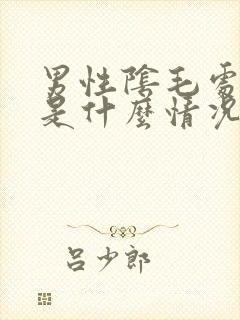 男性陰毛處
是什麼情況
呂少郎